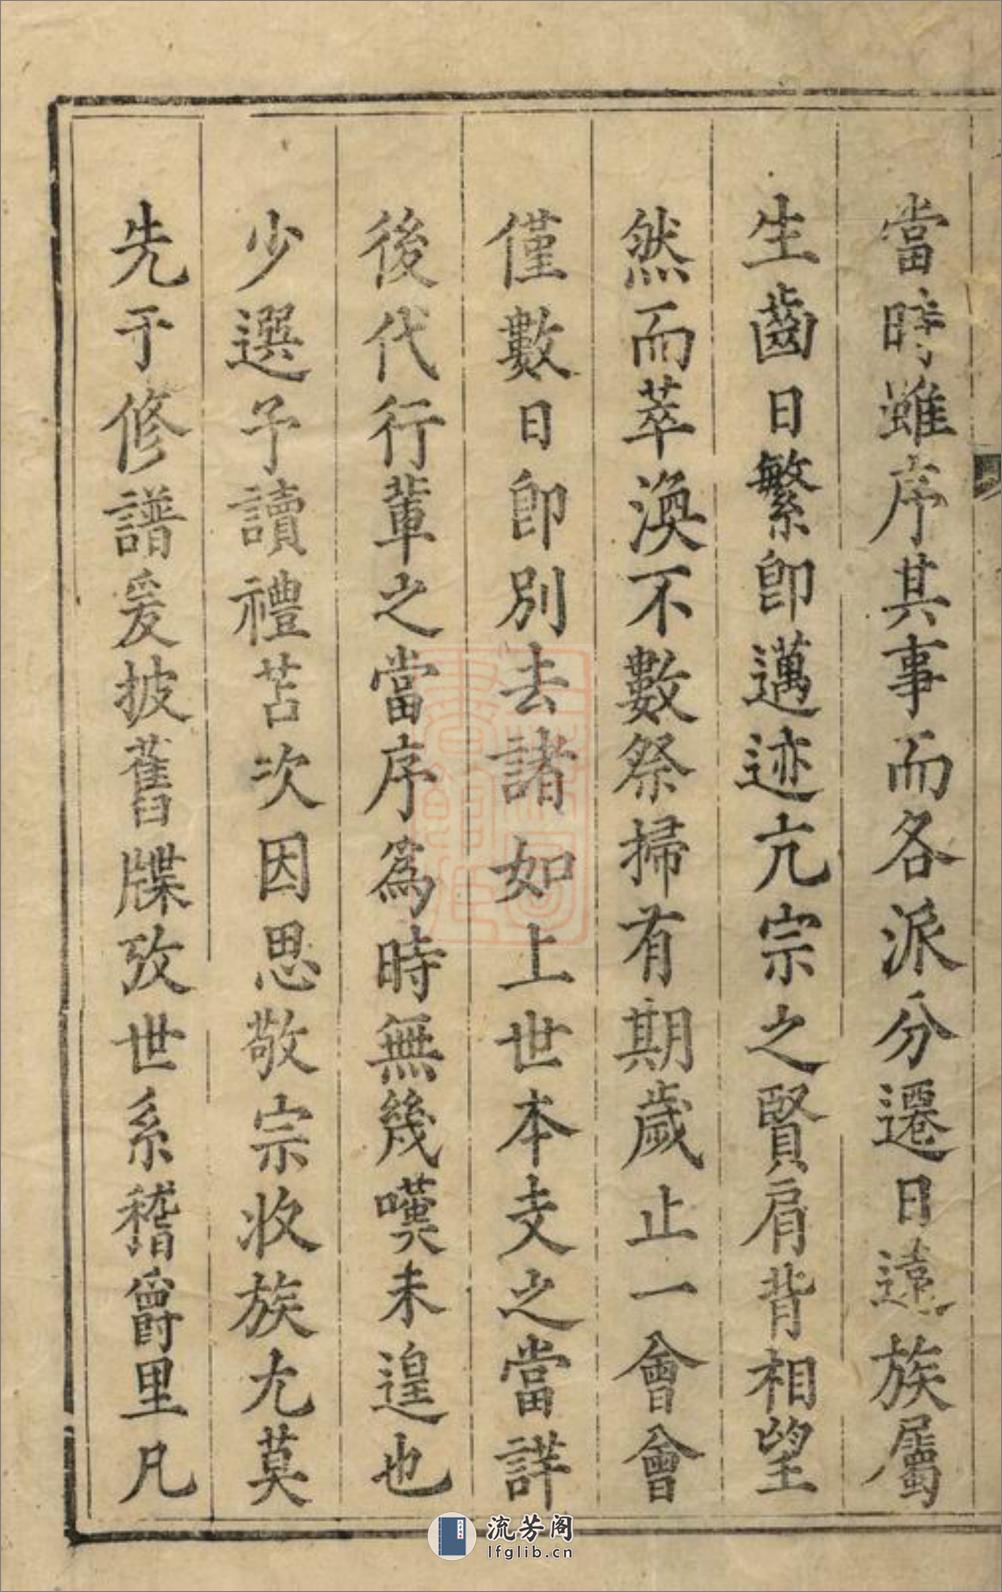 當時雖序其事而各派分遷日遠族屬
生齒日繁卽邁迹亢宗之賢肩背相望
然而萃渙不數祭掃有期歲止一會會
僅數日卽別去諸如上世本支之當詳
後代行輩之當序為時無幾嘆未遑也
少選予讀禮苫次因思敬宗收族尤莫
先于修譜爰披舊牒攷世系稽爵里凡
流芳阁
lfglib.cn